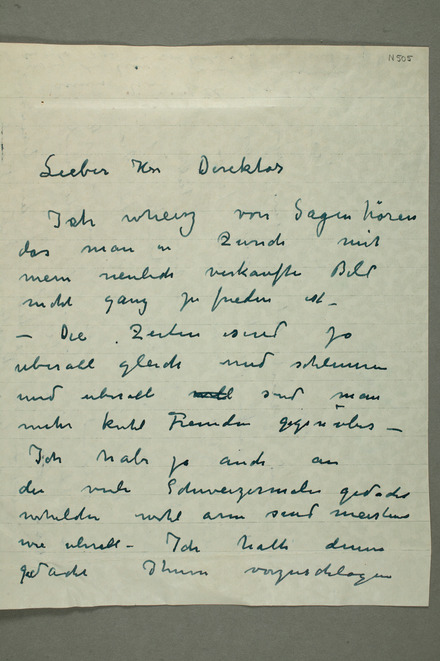 N 505
Lieber Herr Direktor
Ich von Sagen hören
das man in Zurich mit
mein neulich verkaufte Bild
nicht ganz zufrieden ist –
– Die Zeiten sind ja
uberall gleich und schlimm
und uberall sind man
mehr kuhl Fremden gegenüber –
Ich habe ja auch an
die viele Schweizermaler gedacht
wohl arm sind meistens
wie uberall – Ich hatte
gedacht Ihnen vorzuschlagen